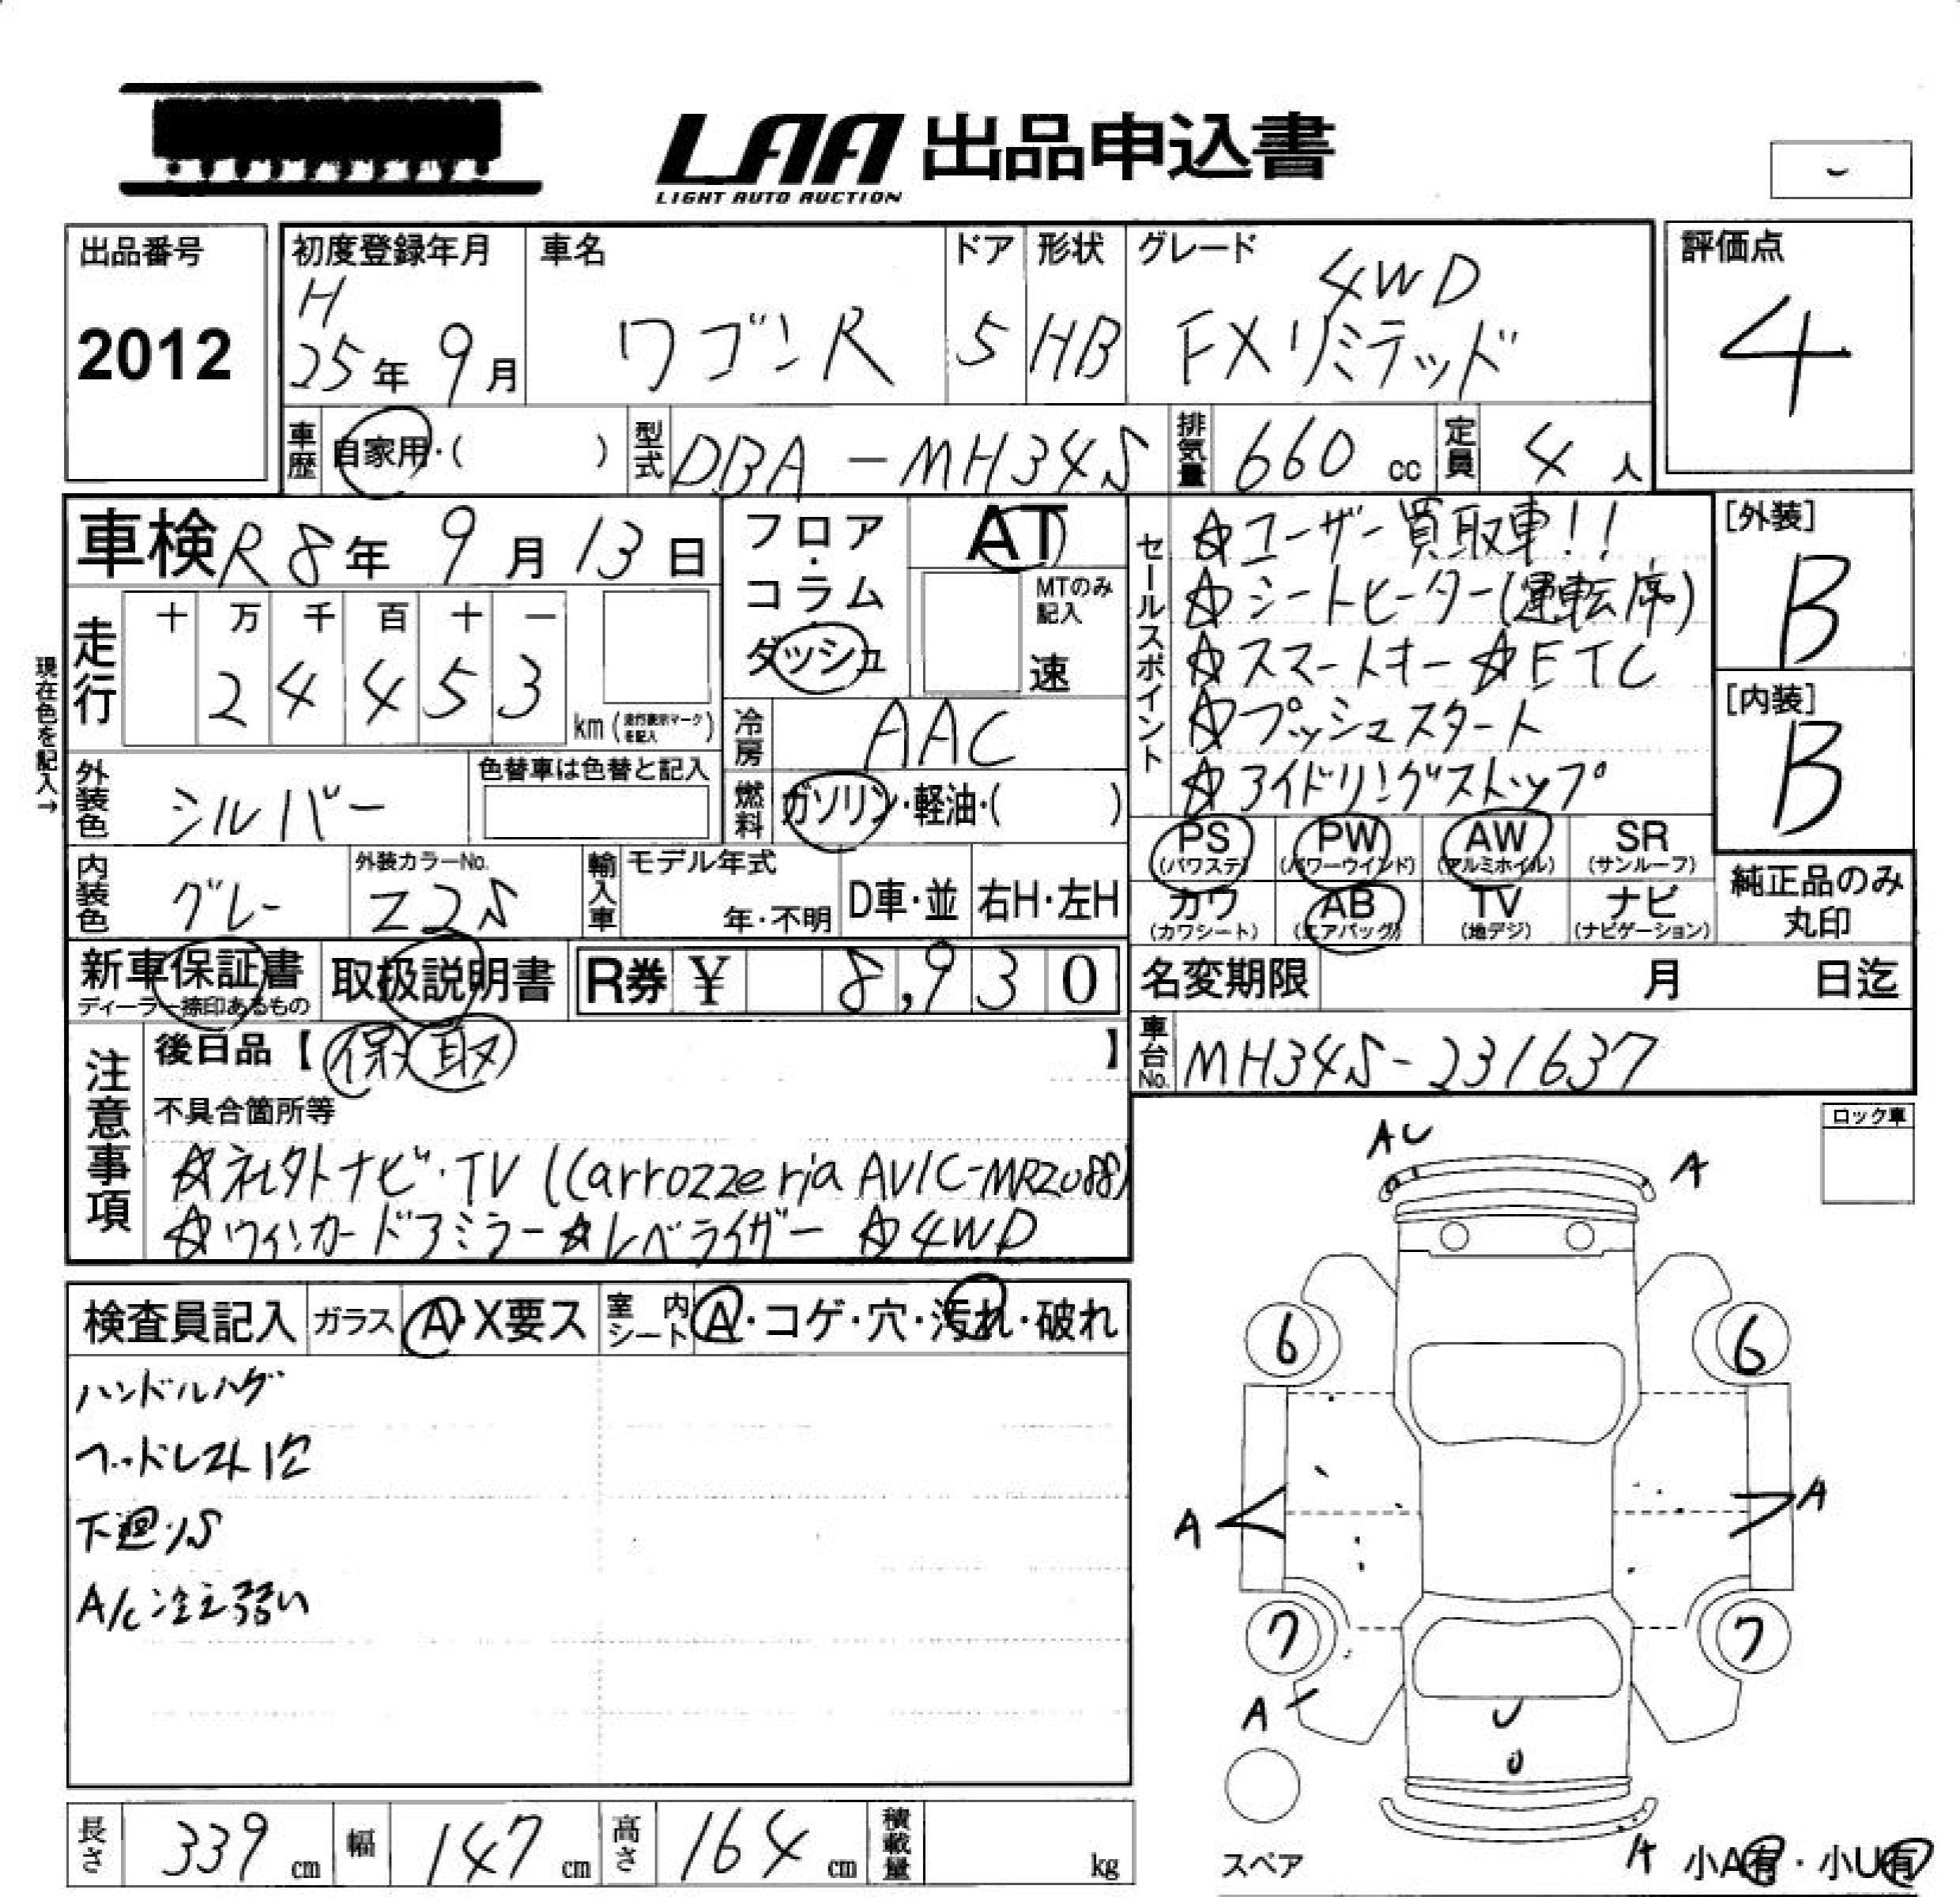 LAA 出品申込書
LIGHT AUTO AUCTION
出品番号
2012
初度登録年月
H
25年 9月
車名
ワゴンR
ドア
5
形状
HB
グレード
4WD
FXリミテッド
評価点
4
車歴 自家用・( )
型式 DBA-MH34S
排気量 660 cc
定員 4 人
車検 R8年 9月 13日
現在色を記入→
走行
十 万 千 百 十 一
2 4 4 5 3
km (走行表示マークを記入)
フロア・コラム・ダッシュ
AT
MTのみ記入
速
冷房 AAC
燃料 ガソリン・軽油・( )
セールスポイント
☆ユーザー買取車!!
☆シートヒーター(運転席)
☆スマートキー ☆ETC
☆プッシュスタート
☆アイドリングストップ
[外装]
B
[内装]
B
外装色 シルバー
色替車は色替と記入
内装色 グレー
外装カラーNo.
Z2S
輸入車 モデル年式
年・不明
D車・並
右H・左H
PS (パワステ)
PW (パワーウインド)
AW (アルミホイル)
SR (サンルーフ)
カワ (カワシート)
AB (エアバッグ)
TV (地デジ)
ナビ (ナビゲーション)
純正品のみ
丸印
新車保証書
ディーラー捺印あるもの
取扱説明書
R券 ¥ 8,930
名変期限 月 日迄
車台No. MH34S-231637
注意事項
後日品【保 取 】
不具合箇所等
☆社外ナビ・TV (Carrozzeria AVIC-MRZ088)
☆ウィンカードアミラー ☆レベライザー ☆4WD
ロック車
検査員記入
ガラス A・X要ス
室内シート A・コゲ・穴・汚れ・破れ
ハンドルハゲ
ヘッドレスト穴
下廻りS
A/C 冷え弱い
AU
A
6
6
A
A
7
7
A
U
U
スペア
小A有・小U有
長さ 339 cm
幅 147 cm
高さ 164 cm
積載量 kg